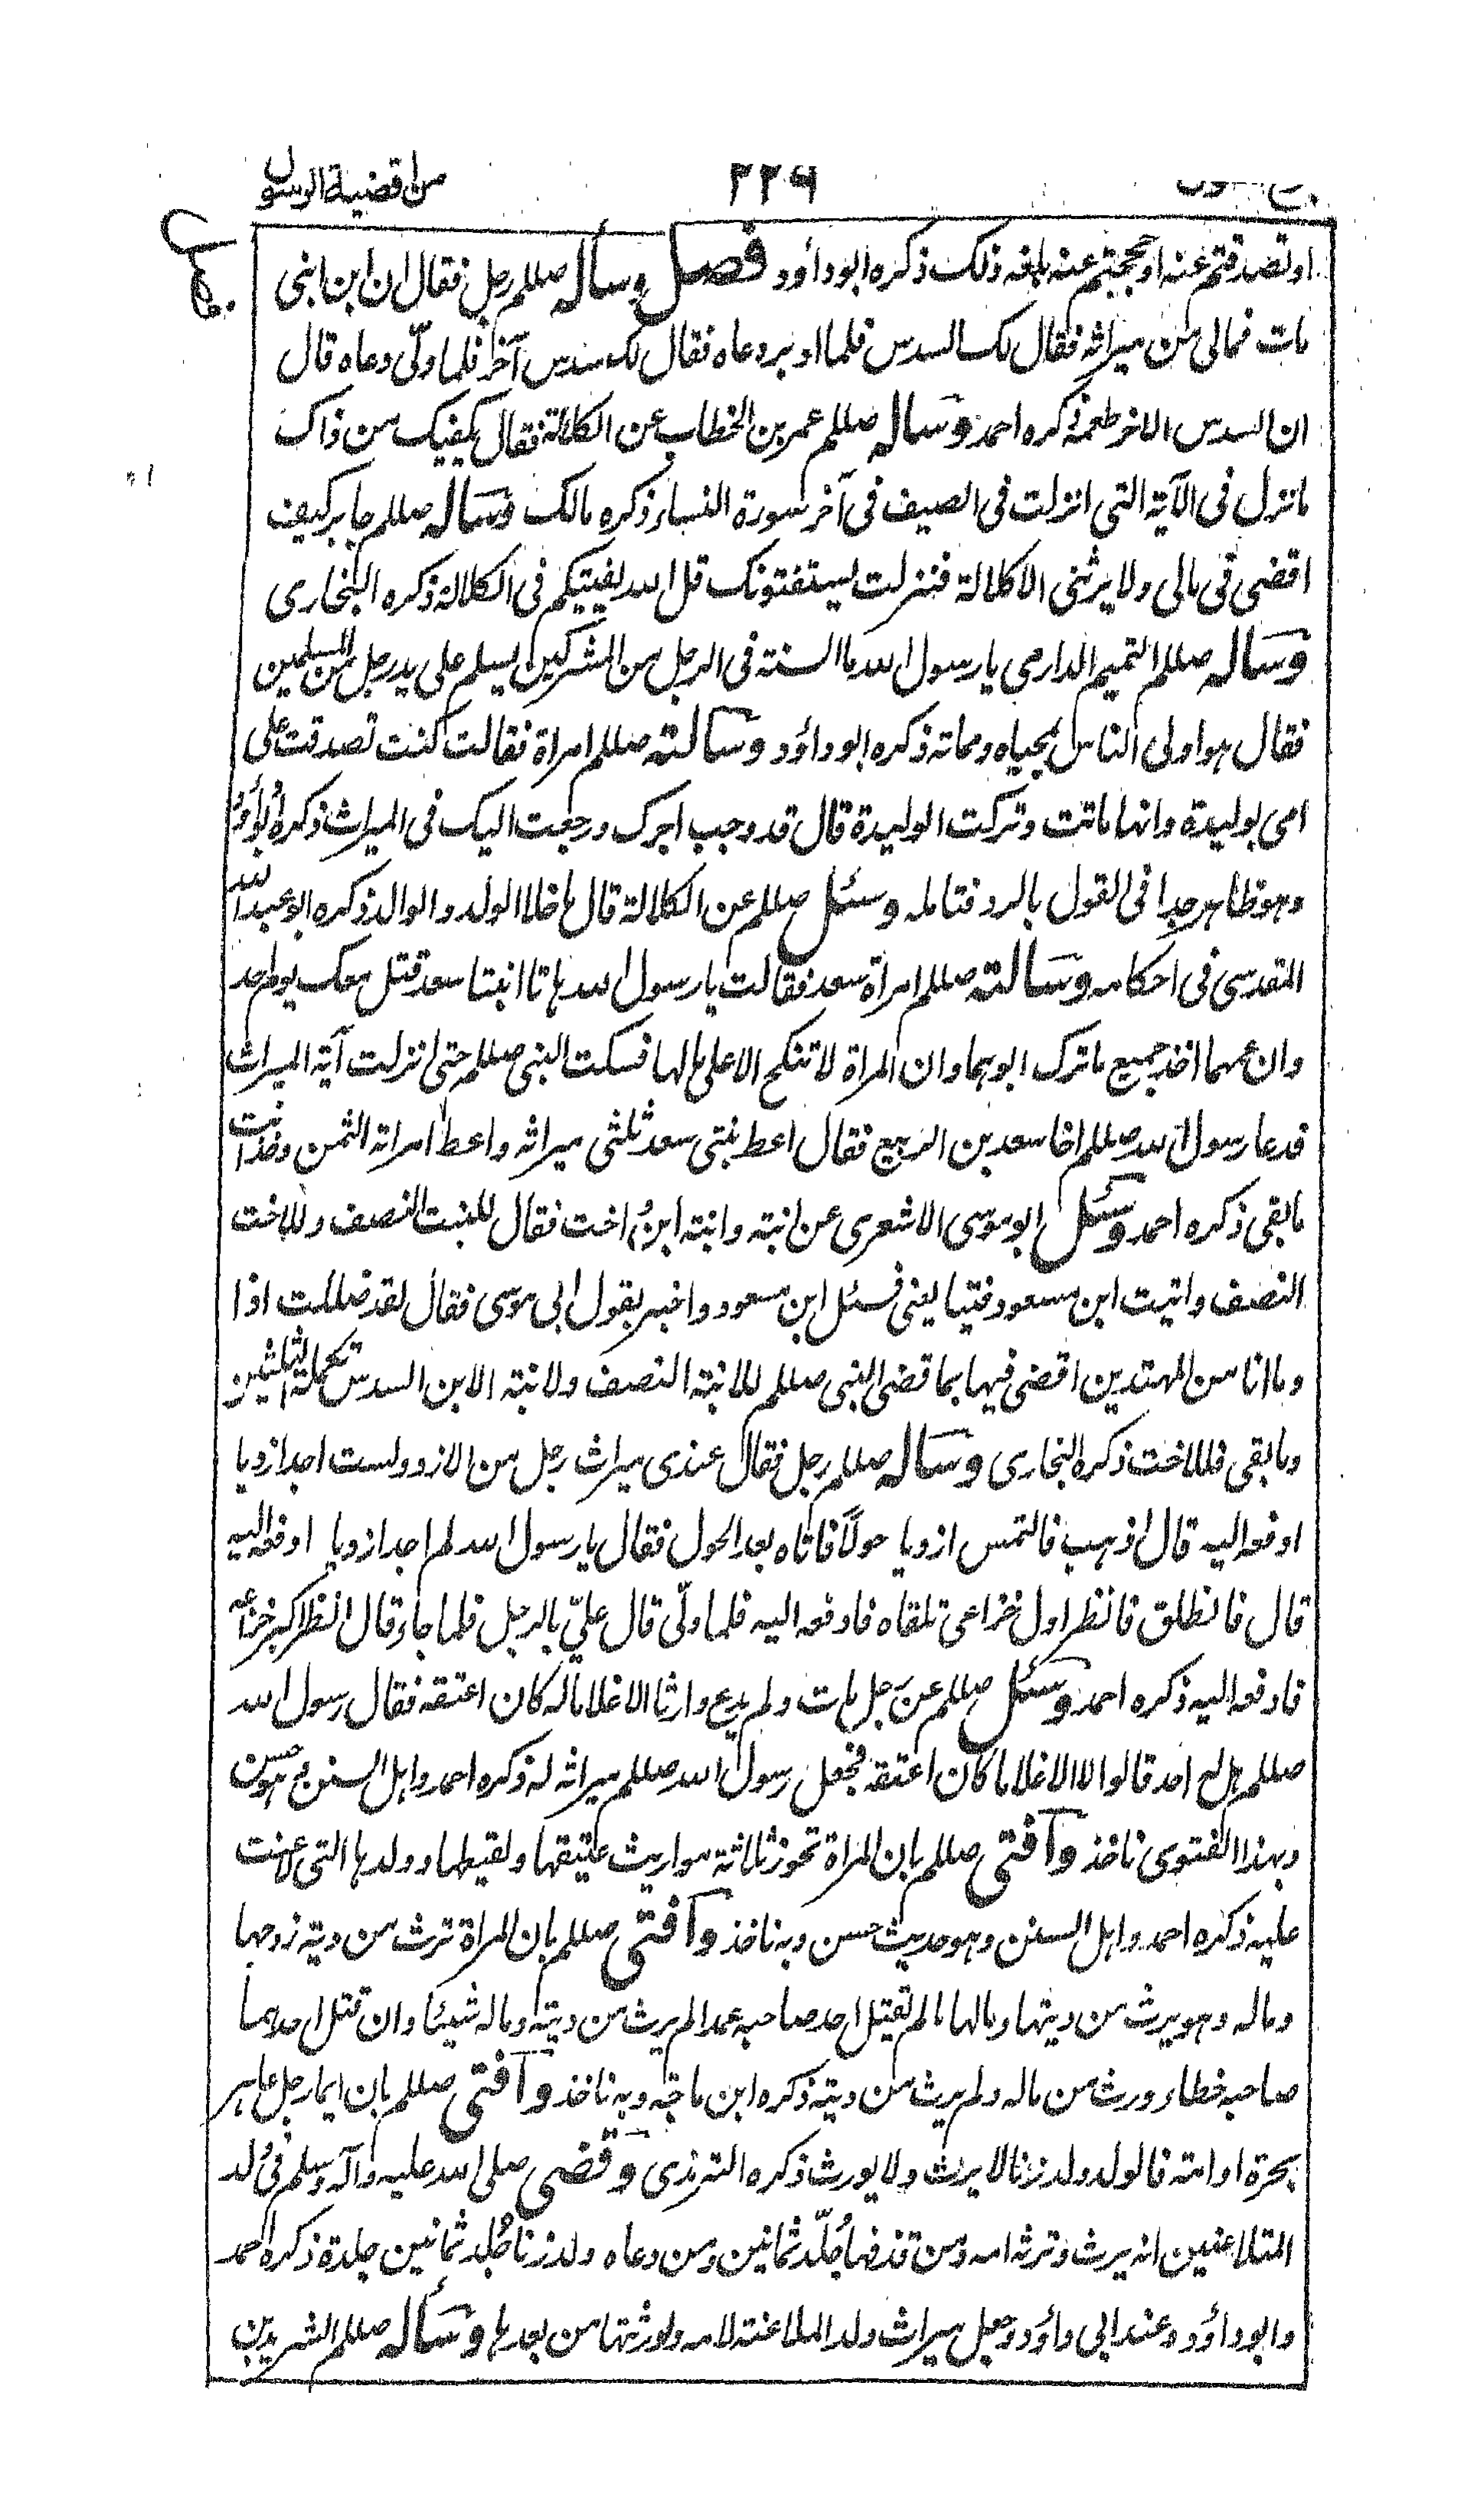 من اقضية الرسول
٢٢٦
او تصدقتم عنه او حججتم عنه بلغه ذلك ذكره ابو داؤد فصل وسأله صللم رجل فقال ان ابن ابنى
مات فمالى من ميراثه فقال لك السدس فلما ادبر دعاه فقال لك سدس آخر فلما ولّى دعاه قال
ان السدس الاخر طعمة ذكره احمد وسأله صللم عمر بن الخطاب عن الكلالة فقال يكفيك من ذاك
ما نزل فى الآية التى انزلت فى الصيف فى آخر سورة النساء ذكره مالك وسأله صللم جابر كيف
اقضى فى مالى ولا يرثنى الا كلالة فنزلت يستفتونك قل الله يفتيكم فى الكلالة ذكره البخارى
وسأله صللم التميم الدارمى يا رسول الله ما السنة فى الرجل من المشركين يسلم على يد رجل من المسلمين
فقال هو اولى الناس بمحياه ومماته ذكره ابو داؤد وسألته صللم امراة فقالت كنت تصدقت على
امى بوليدة وانها ماتت وتركت الوليدة قال قد وجب اجرك ورجعت اليك فى الميراث ذكره ابو داؤد
وهو ظاهر جدا فى القول بالرد فتامله وسئل صللم عن الكلالة قال ما خلا الولد والوالد ذكره ابو عبد الله
المقدسى فى احكامه وسألته صللم امراة سعد فقالت يا رسول الله هاتا ابنتا سعد قتل معك يوم احد
وان عمهما اخذ جميع ما ترك ابوهما وان المراة لا تنكح الا على مالها فسكت النبى صللم حتى انزلت آية الميراث
فدعا رسول الله صللم اخا سعد بن الربيع فقال اعط بنتى سعد ثلثى ميراثه واعط امراته الثمن وخذ انت
ما بقى ذكره احمد وسئل ابو موسى الاشعرى عن ابنته وابنته ابن واخت فقال للبنت النصف وللاخت
النصف واتيت ابن مسعود فتيا يعنى فسئل ابن مسعود واخبر بقول ابى موسى فقال لقد ضللت اذا
وما انا من المهتدين اقضى فيها بما قضى النبى صللم للابنة النصف ولابنة الابن السدس تكملة الثلثين
وما بقى فللاخت ذكره البخارى وسأله صللم رجل فقال عندى ميراث رجل من الازد ولست اجد ازديا
ادفعه اليه قال اذهب فالتمس ازديا حولاً فاتاه بعد الحول فقال يا رسول الله لم اجد ازديا ادفعه اليه
قال فانطلق فانظر اول خزاعى تلقاه فادفعه اليه فلما ولّى قال علىّ بالرجل فلما جاء قال انظر اكبر خزاعه
فادفعه اليه ذكره احمد وسئل صللم عن رجل مات ولم يدع وارثا الا غلاما له كان اعتقه فقال رسول الله
صللم هل له احد قالوا لا الا غلاما كان اعتقه فجعل رسول الله صللم ميراثه له ذكره احمد واهل السنن وهو حسن
وبهذا الفتوى ناخذ وآفتى صللم بان المراة تحوز ثلاثة مواريث عتيقها ولقيطها وولدها التى لاعنت
عليه ذكره احمد واهل السنن وهو حديث حسن وبه ناخذ وآفتى صللم بان المراة ترث من دية زوجها
وماله وهو يرث من ديتها ومالها ما لم يقتل احد صاحبه عمدا لم يرث من ديته وماله شيئا وان قتل احدهما
صاحبه خطاء ورث من ماله ولم يرث من ديته ذكره ابن ماجه وبه ناخذ وآفتى صللم بان ايما رجل عاهر
بحرة او امته فالولد ولد زنا لا يرث ولا يورث ذكره الترمذى وقضى صلى الله عليه وآله وسلم فى ولد
المتلاعنين انه يرث وترثه امه ومن قذفها جُلّد ثمانين ومن دعاه ولد زنا جُلد ثمانين جلدة ذكره احمد
وابو داؤد وعند ابى داؤد وجعل ميراث ولد الملاعنة لامه ولورثتها من بعدها وسأله صللم الشريد بن